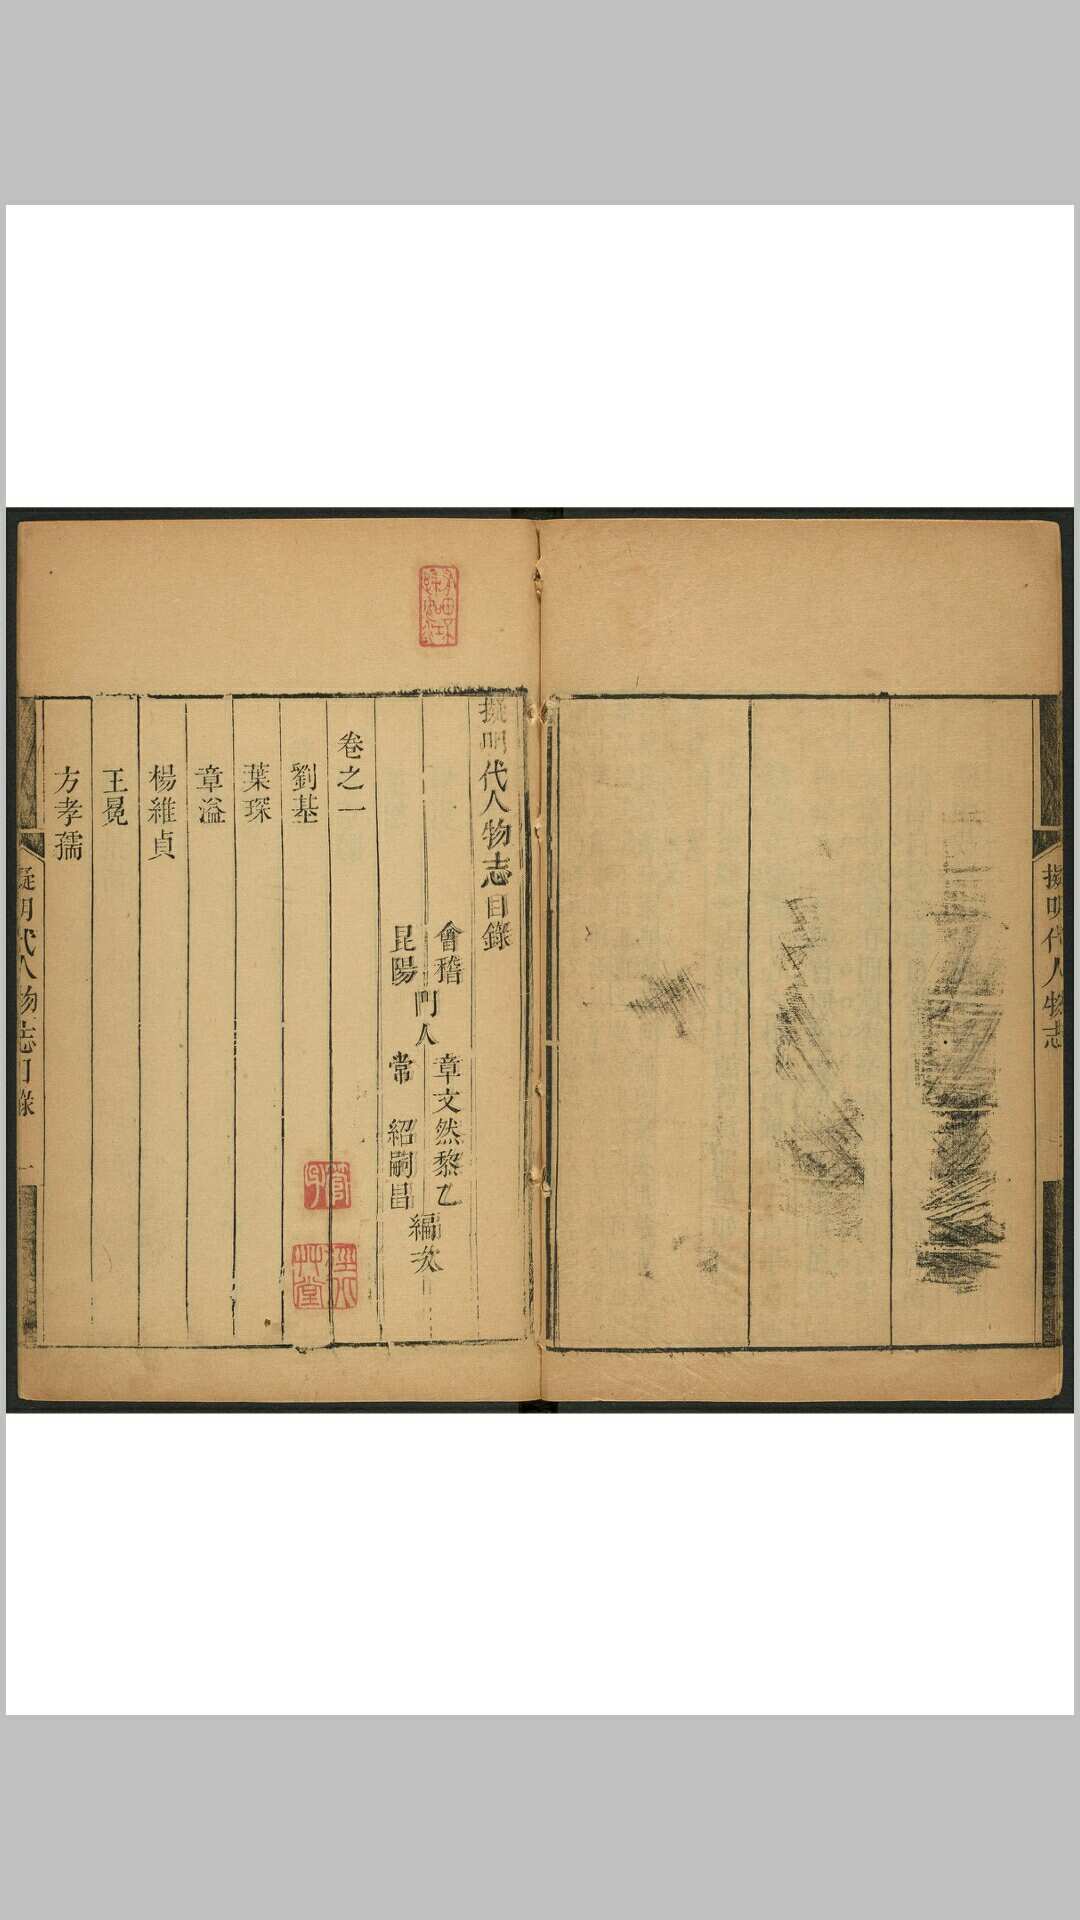 擬明代人物志
擬明代人物志目錄
會稽 章文然黎乙
門人 編次
昆陽 常 紹嗣昌
卷之一
劉基
葉琛
章溢
楊維貞
王冕
方孝孺
擬明代人物志目錄 一
草堂